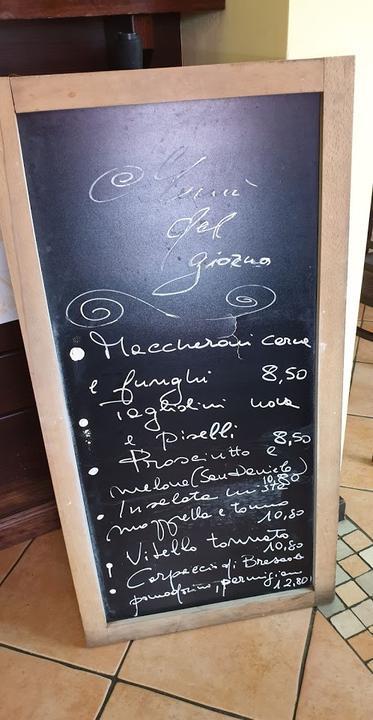 Menù
del
giorno
Maccheroni carne
e funghi 8,50
Tagliolini
e piselli 8,50
Prosciutto e
melone (San Daniele)
10,80
Insalata mista
mozzarella e tonno
10,80
Vitello tonnato
10,80
Carpaccio di Bresaola
pomodorino, parmigiano
12,80